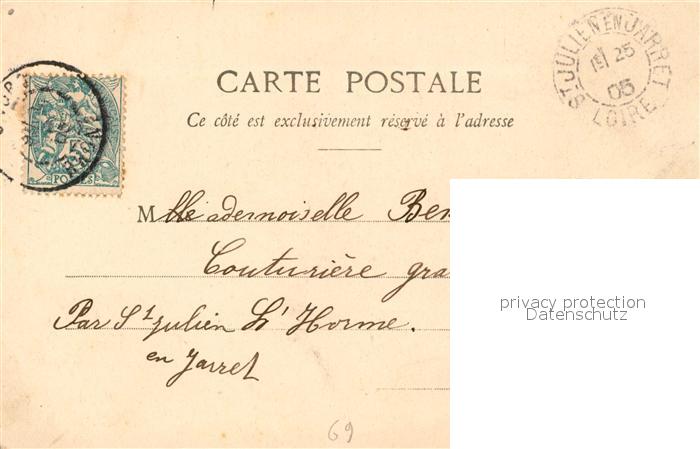 ST JULIEN EN JARRET
25
05
LOIRE
CARTE POSTALE
Ce côté est exclusivement réservé à l'adresse
POSTES
Mlle ademoiselle Ben
Couturière gra
Par St Julien L'Horme.
en Jarret
privacy protection
Datenschutz
69